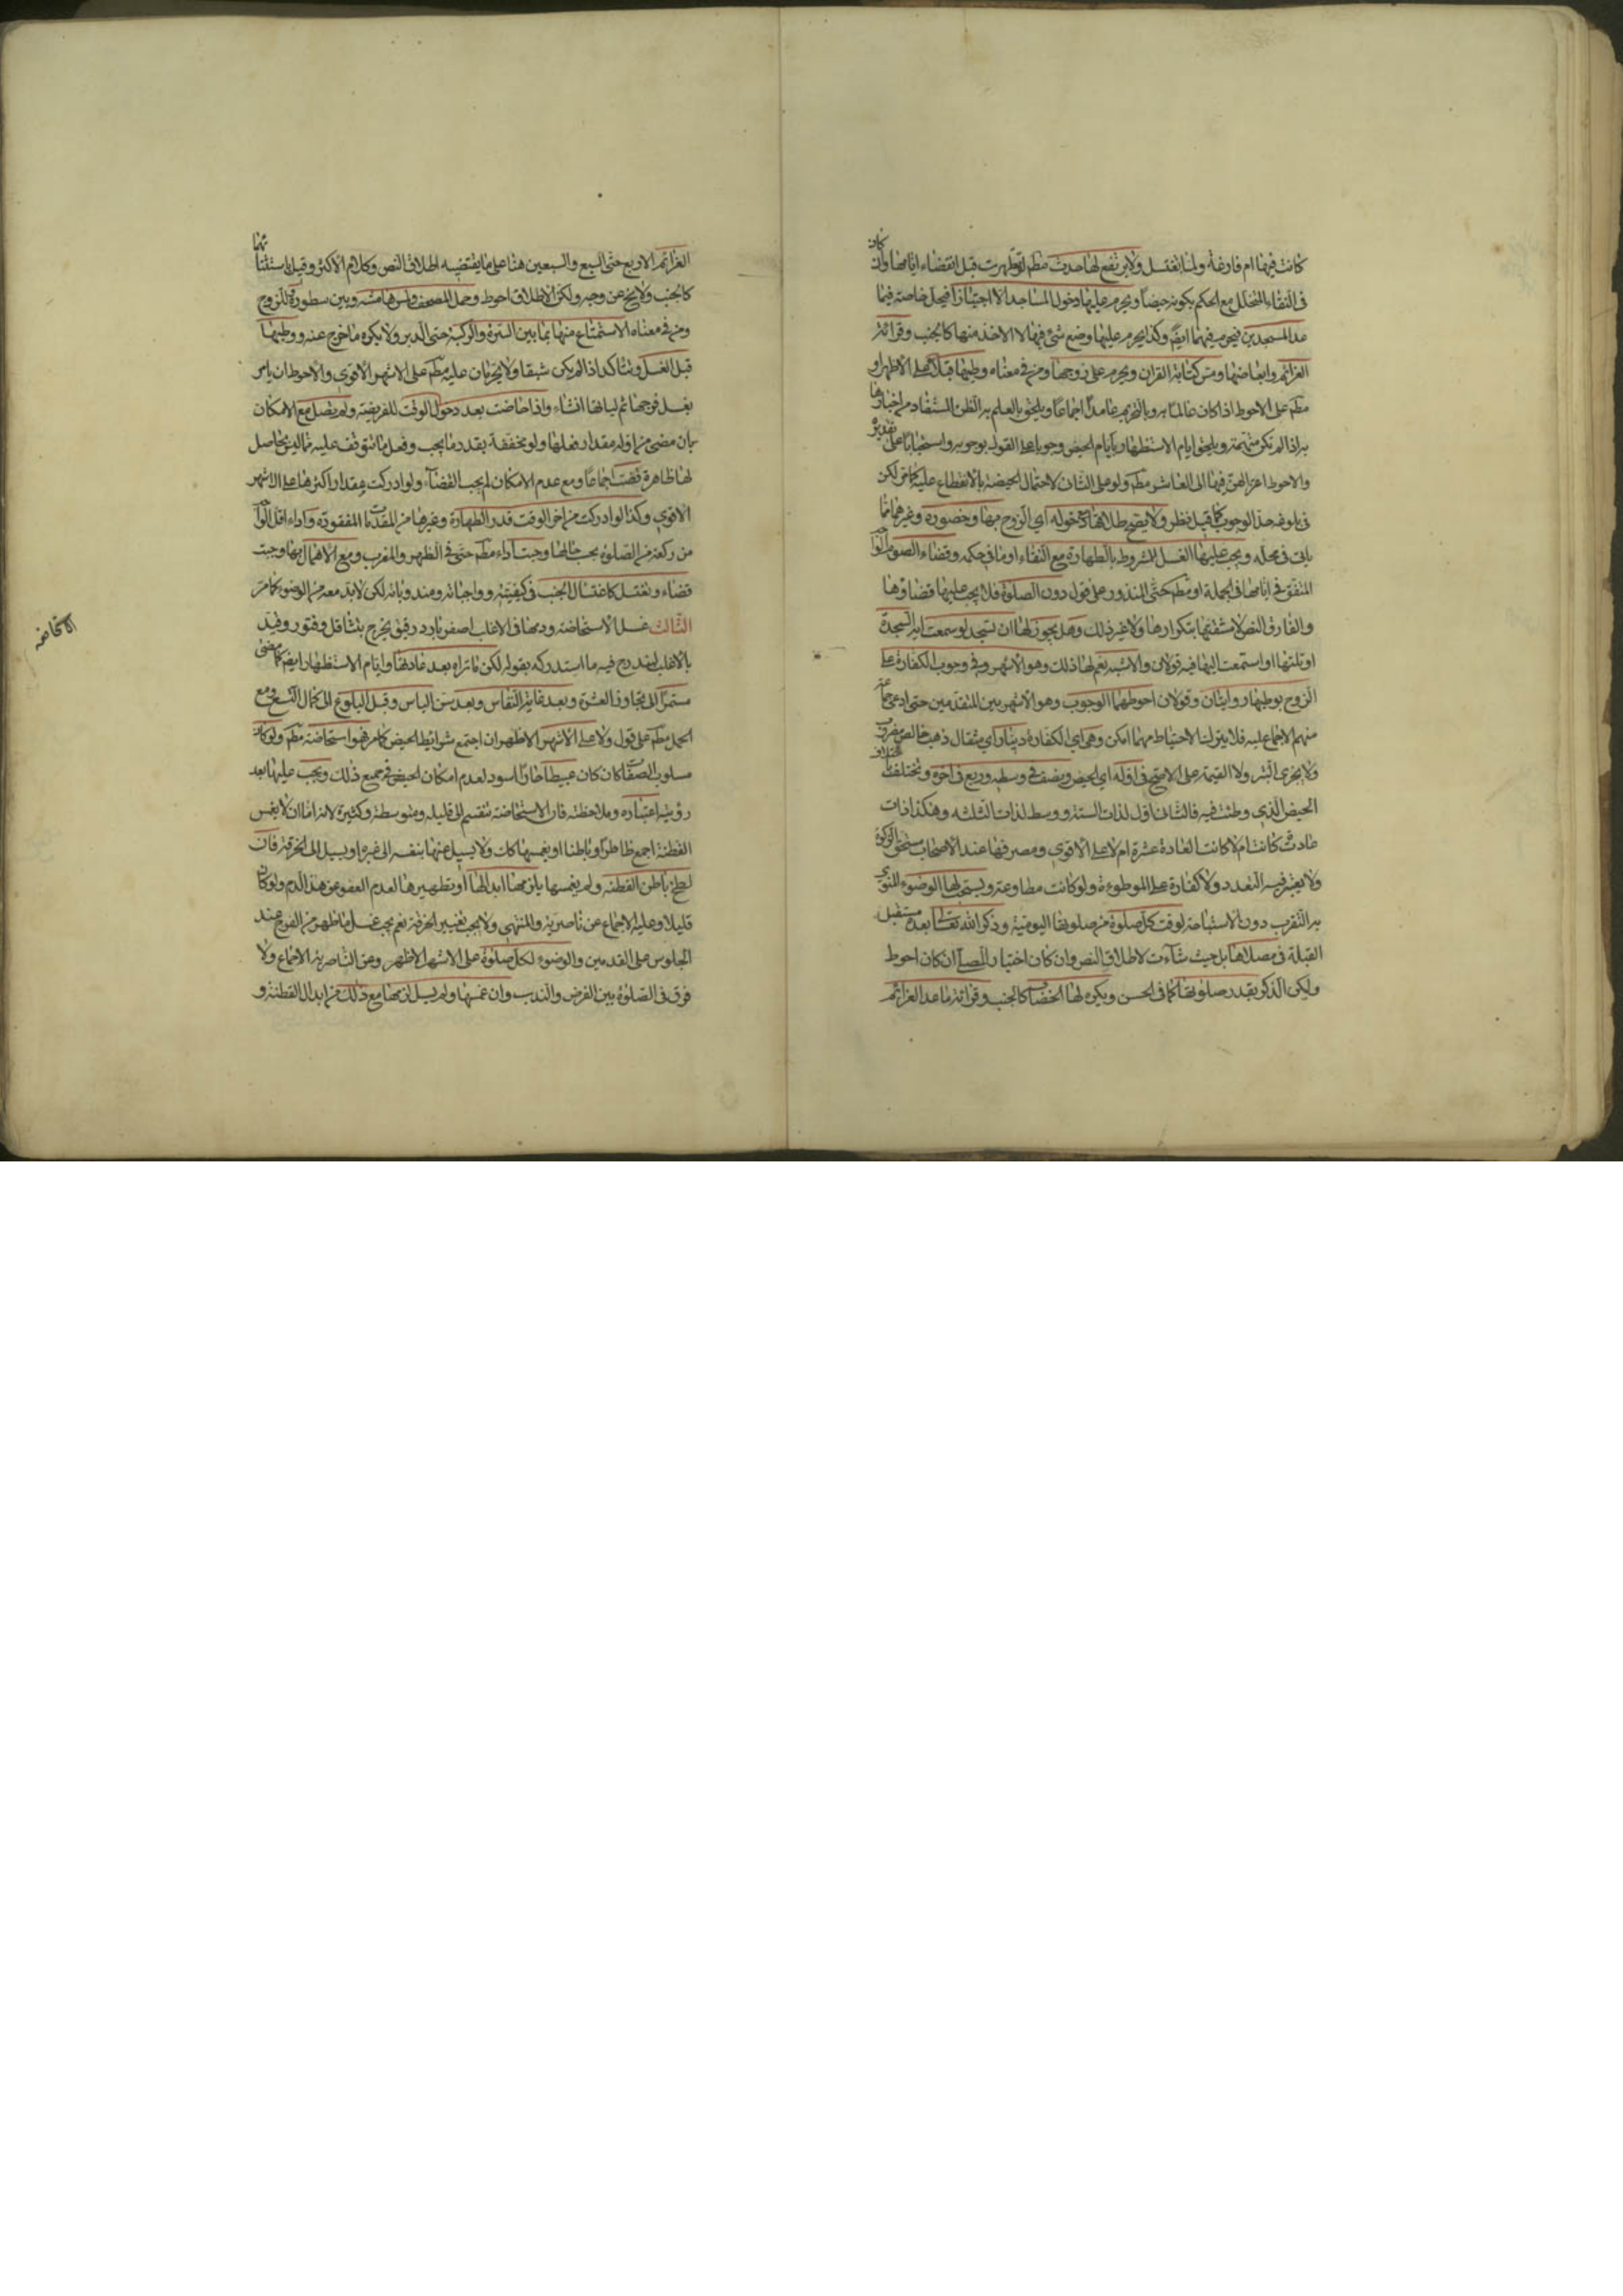 كانت فيها ام فارغة ولما تغتسل ولا يرتفع لها حدث مطم لو تطهرت قبل انقضاء ايامها وان كان
في النقاء المتخلل مع الحكم بكونه حيضا ويحرم عليها دخول المساجد الا اجتيازا فيحل خاصة فيما
عدا المسجدين فيحرم فيهما ايضا وكذا يحرم عليها وضع شئ فيها لا الاخذ منها كالجنب وقرائة
العزائم وابعاضها ومس كتابة القران ويحرم على زوجها ومن في معناه وطيها قبلا على الاظهر او
مطم على الاحوط اذا كان عالما به وبالتحريم عامدا اجماعا ويلحق بالعلم به الظن المستفاد من اخبارها
به اذا لم تكن متهمة ويلحق ايام الاستظهار بايام الحيض وجوبا على القول بوجوبه واستحبابا على تقديره
والاحوط اعتزالهن فيها الى العاشر مطم ولو على الثاني لاحتمال الحيضة بالانقطاع عليه كما مر لكن
في بلوغه حد الوجوب كما قيل نظر ولا يصح طلاقها مع دخوله اي الزوج بها وحضوره وغيرهما مما
ياتي في محله ويجب عليها الغسل للمشروط بالطهارة مع النقاء او ما في حكمه وقضاء الصوم الواجب
المتفق في ايامها في الجملة او مطم حتى المنذور على قول دون الصلوة فلا يجب عليها قضاؤها
والفارق النص لا مشقتها بتكرارها ولا غير ذلك وهل يجوز لها ان تسجد لو سمعت اية السجدة
او تلتها او استمعت اليها فيه قولان والاشبه نعم لها ذلك وهو الاشهر وفي وجوب الكفارة على
الزوج بوطيها روايتان وقولان احوطهما الوجوب وهو الاشهر بين المتقدمين حتى ادعى جماعة
منهم الاجماع عليه فلا يترك الاحتياط مهما امكن وهي اي الكفارة دينار اي مثقال ذهب خالص مضروب
ولا يجزى التبر ولا القيمة على الاصح في اوله اي الحيض ونصف في وسطه وربع في اخره وتختلف باختلاف
الحيض الذي وطئت فيه فالثاني اول لذات الستة ووسط لذات الثلثة وهكذا ذات
عادة كانت ام لا كانت العادة عشرة ام لا على الاقوى ومصرفها عند الاصحاب مستحق الزكوة
ولا يعتبر فيه التعدد ولا كفارة على الموطوءة ولو كانت مطاوعة ويستحب لها الوضوء المنوى
به التقرب دون الاستباحة لوقت كل صلوة من صلوتها اليومية وذكر الله تعالى بعده مستقبل
القبلة في مصلاها بل حيث شاءت لاطلاق النص وان كان اختيار المصلى ان كان احوط
وليكن الذكر بقدر صلوتها كما في الحسن ويكره لها الخضاب كالجنب وقرائة ما عدا العزائم
العزائم الاربع حتى السبع والسبعين هنا على ما يقتضيه اطلاق النص وكلام الاكثر وقيل باستثنائهما
كالجنب ولا يخ عن وجه ولكن الاطلاق احوط وحمل المصحف ولمس هامشه وبين سطوره وللزوج
ومن في معناه الاستمتاع منها بما بين السرة والركبة حتى الدبر ولا يكره ما خرج عنه ووطيها
قبل الغسل ويتاكد اذا لم يكن شبقا ولا يحرمان عليه مطم على الاشهر الاقوى والاحوط ان يامر
بغسل فرجها ثم لياتها انشاء واذا حاضت بعد دخول الوقت للفريضة ولم يصل مع الامكان
بان مضى من اوله مقدار فعلها ولو مخففة بقدر ما يجب وفعل ما تتوقف عليه مما ليس بحاصل
لها طاهرة قضت اجماعا ومع عدم الامكان لم يجب القضاء ولو ادركت مقدار اكثرها على الاشهر
الاقوى وكذا لو ادركت من اخر الوقت قدر الطهارة وغيرها من المقدمات المفقودة واداء اقل الواجب
من ركعة من الصلوة بحسب حالها وجبت اداء مطم حتى في الظهر والمغرب ومع الاهمال بها وجبت
قضاء وتغتسل كاغتسال الجنب في كيفيته وواجباته ومندوباته لكن لا بد معه من الوضوء كما مر
الثالث غسل الاستحاضة ودمها في الاغلب اصفر بارد رقيق يخرج بتثاقل وفتور وقيد
بالاغلب ليندرج فيه ما استدركه بقوله لكن ما تراه بعد عادتها وايام الاستظهار ايضا كما مضى
مستمرا الى تجاوز العشرة وبعد غاية النفاس وبعد سن الياس وقبل البلوغ الى كمال التسع ومع
الحمل مطم على قول ولا على الاشهر الاظهر ان اجتمع شرايط الحيض كما مر فهو استحاضة مطم ولو كان
مسلوب الصفات كان كان عبيطا حارا اسود لعدم امكان الحيض في جميع ذلك ويجب عليها بعد
رؤيته اعتباره وملاحظته فان الاستحاضة تنقسم الى قليلة ومتوسطة وكثيرة لانه اما ان لا يغمس
القطنة اجمع ظاهرا وباطنا او يغمسها كات ولا يسيل عنها بنفسه الى غيره او يسيل الى الخرقة فان
لطخ باطن القطنة ولم يغمسها يلزمها ابدالها او تطهيرها لعدم العفو عن هذا الدم ولو كان
قليلا وعليه الاجماع عن ناصرية والمنتهى ولا يجب تغيير الخرقة نعم يجب غسل ما ظهر من الفرج عند
الجلوس على القدمين والوضوء لكل صلوة على الاشهر الاظهر وعن الناصرية الاجماع ولا
فرق في الصلوة بين الفرض والندب وان غمسها ولم يسل لزمها مع ذلك من ابدال القطنة و
الاستحاضه